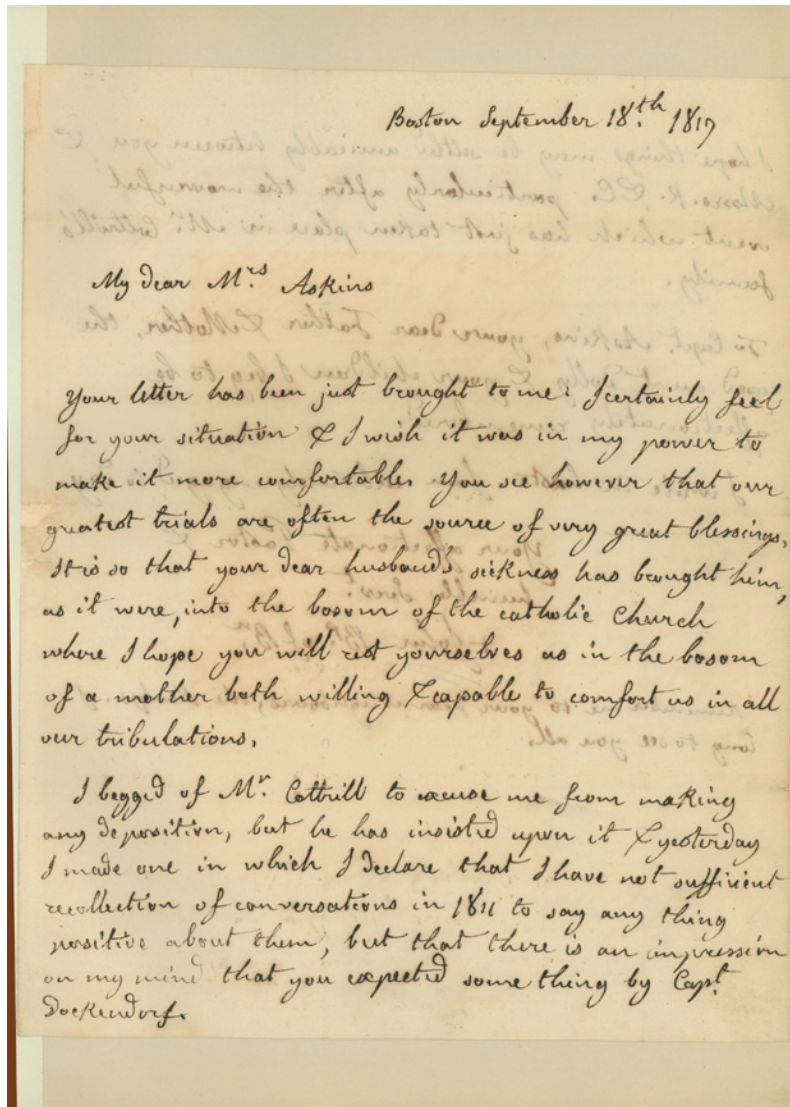 Boston September 18.th 1817
My dear M.rs Askins
Your letter has been just brought to me. I certainly feel
for your situation & I wish it was in my power to
make it more comfortable. You see however that our
greatest trials are often the source of very great blessings.
It is so that your dear husband's sickness has brought him,
as it were, into the bosom of the catholic Church
where I hope you will rest yourselves as in the bosom
of a mother both willing & capable to comfort us in all
our tribulations.
I begged of Mr. Cottrill to excuse me from making
any deposition, but he has insisted upon it & yesterday
I made one in which I declare that I have not sufficient
recollection of conversations in 1811 to say any thing
positive about them, but that there is an impression
on my mind that you expected some thing by Capt.
Dockendorf.